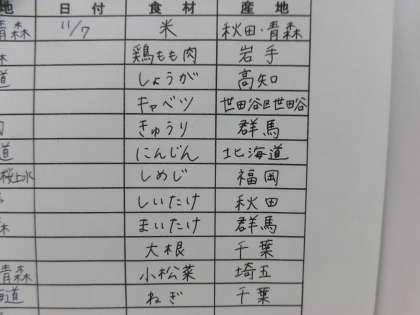 地 日付 食材 産地
青森 11/7 米 秋田・青森
鶏もも肉 岩手
道 しょうが 高知
キャベツ 世田谷区世田谷
きゅうり 群馬
道 にんじん 北海道
桜上水 しめじ 福岡
しいたけ 秋田
まいたけ 群馬
大根 千葉
青森 小松菜 埼玉
海道 ねぎ 千葉